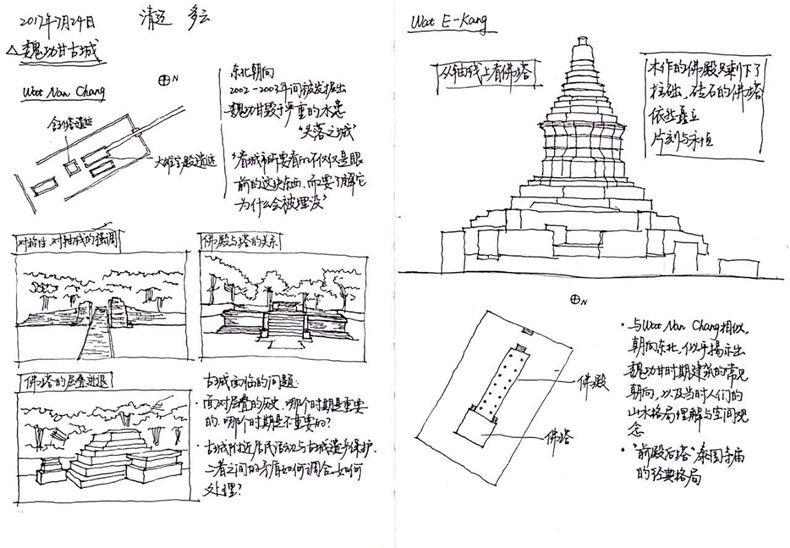 2017年7月29日 清迈 多云
△魏功甘古城
Wat Nan Chang
N
东北朝向
2002-2003年间被发掘出
魏功甘毁于严重的水患
"失落之城"
"看城市所要看的不仅仅是眼
前的这块东西,而要了解它
为什么会被埋没"
对称性、对轴线的强调
佛殿与塔的关系
佛塔的层叠进退
古城面临的问题:
·面对层叠的历史,哪个时期是重要
的,哪个时期是不重要的?
·古城附近居民活动与古城遗产保护,
二者之间的矛盾如何调合,如何
处理?
Wat E-Kang
从轴线上看佛塔
木作的佛殿只剩下了
柱础,砖石的佛塔
依然矗立
片刻与永恒
N
佛殿
佛塔
·与Wat Nan Chang相似,
朝向东北,似乎揭示出
魏功甘时期建筑的常见
朝向,以及当时人们的
山水格局理解与空间观
念
·"前殿后塔"泰国寺庙
的经典格局